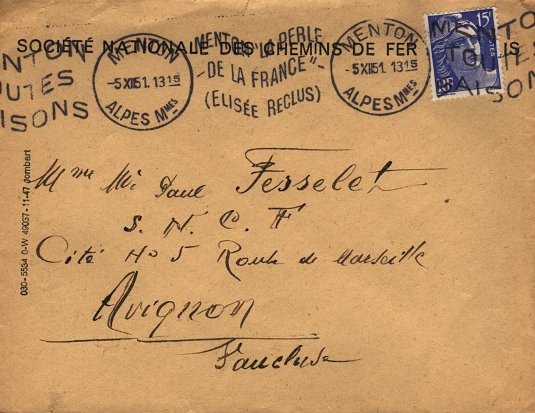 SOCIÉTÉ NATIONALE DES CHEMINS DE FER IS
MENTON
TOUTES
SAISONS
MENTON
-5 XII 51. 13 15
ALPES Mmes
MENTON "LA PERLE
- DE LA FRANCE" -
(ELISÉE RECLUS)
MENTON
-5 XII 51. 13 15
ALPES Mmes
MENTO
TOUTES
AISONS
15F
RF
030-5534 0-W 49037-11-47 Jombart
Paul Fesselet
S. N. C. F
Cité No 5 Route de Marseille
Avignon
Vaucluse